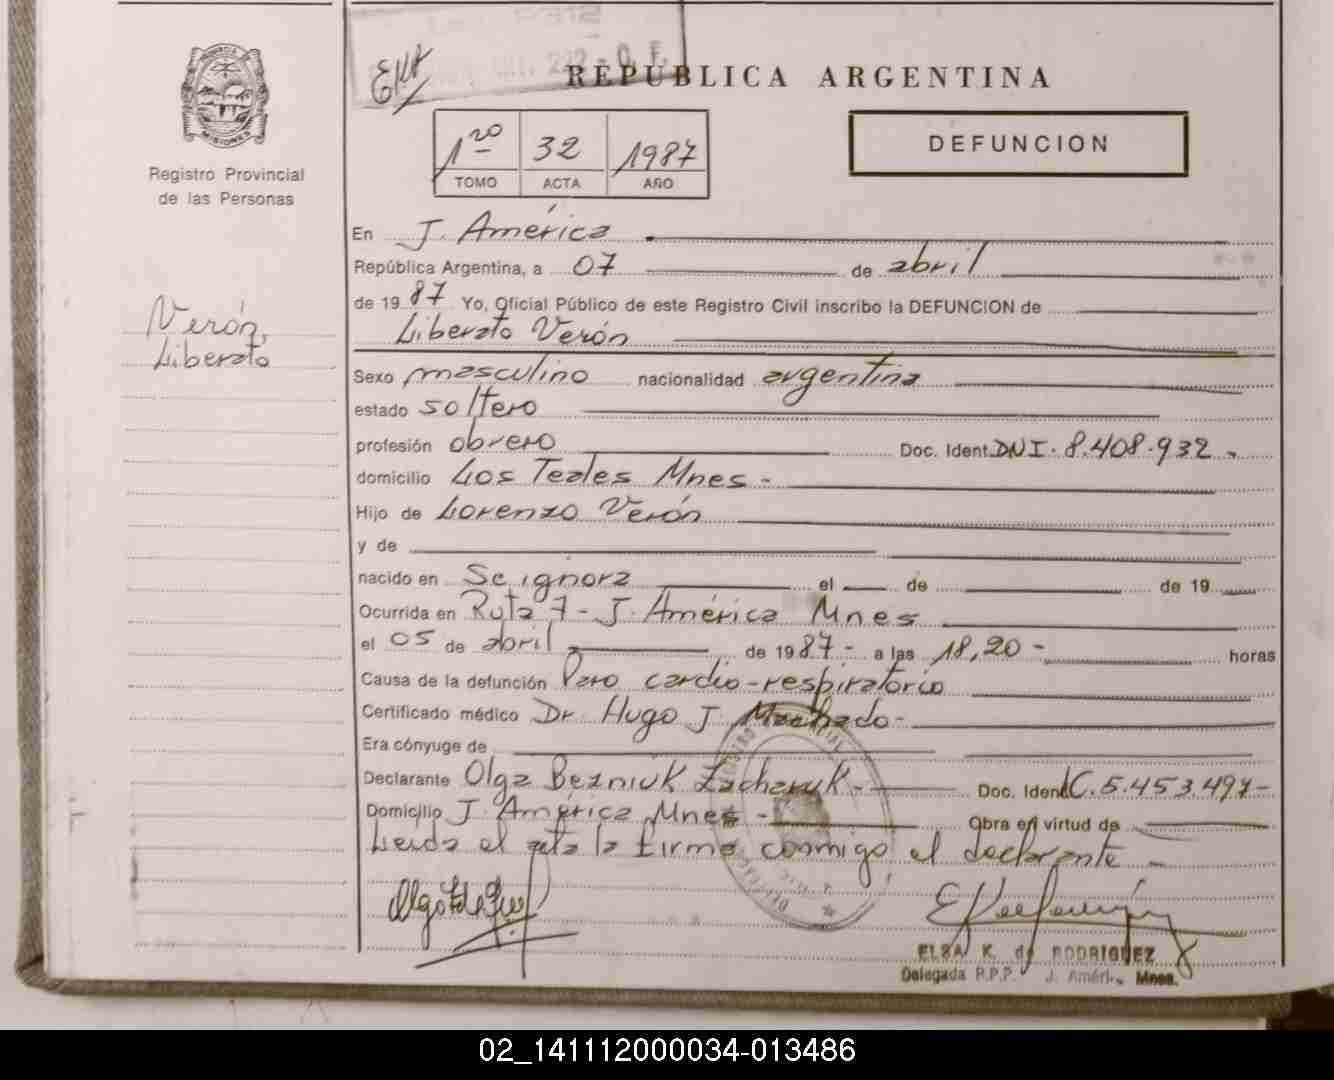 REPUBLICA ARGENTINA
PROVINCIA DE MISIONES
Registro Provincial
de las Personas
1ro 32 1987
TOMO ACTA AÑO
DEFUNCION
En J. América
República Argentina, a 07 de abril
de 1987 Yo, Oficial Público de este Registro Civil inscribo la DEFUNCION de
Liberato Verón
Verón,
Liberato
Sexo masculino nacionalidad argentina
estado soltero
profesión obrero Doc. Ident. DNI. 8.408.932
domicilio Los Teales Mnes -
Hijo de Lorenzo Verón
y de
nacido en Se ignora el de de 19
Ocurrida en Ruta 7 - J. América Mnes
el 05 de abril de 1987 - a las 18,20 - horas
Causa de la defunción Paro cardio-respiratorio
Certificado médico Dr. Hugo J. Machado -
Era cónyuge de
Declarante Olga Bezniuk Zacharuk - Doc. Ident C. 5.453.497 -
Domicilio J. América Mnes - Obra en virtud de
Leída el acta la firma conmigo el declarante -
ELSA K. de RODRIGUEZ
Delegada R.P.P. J. Améri. Mnes.
02_141112000034-013486